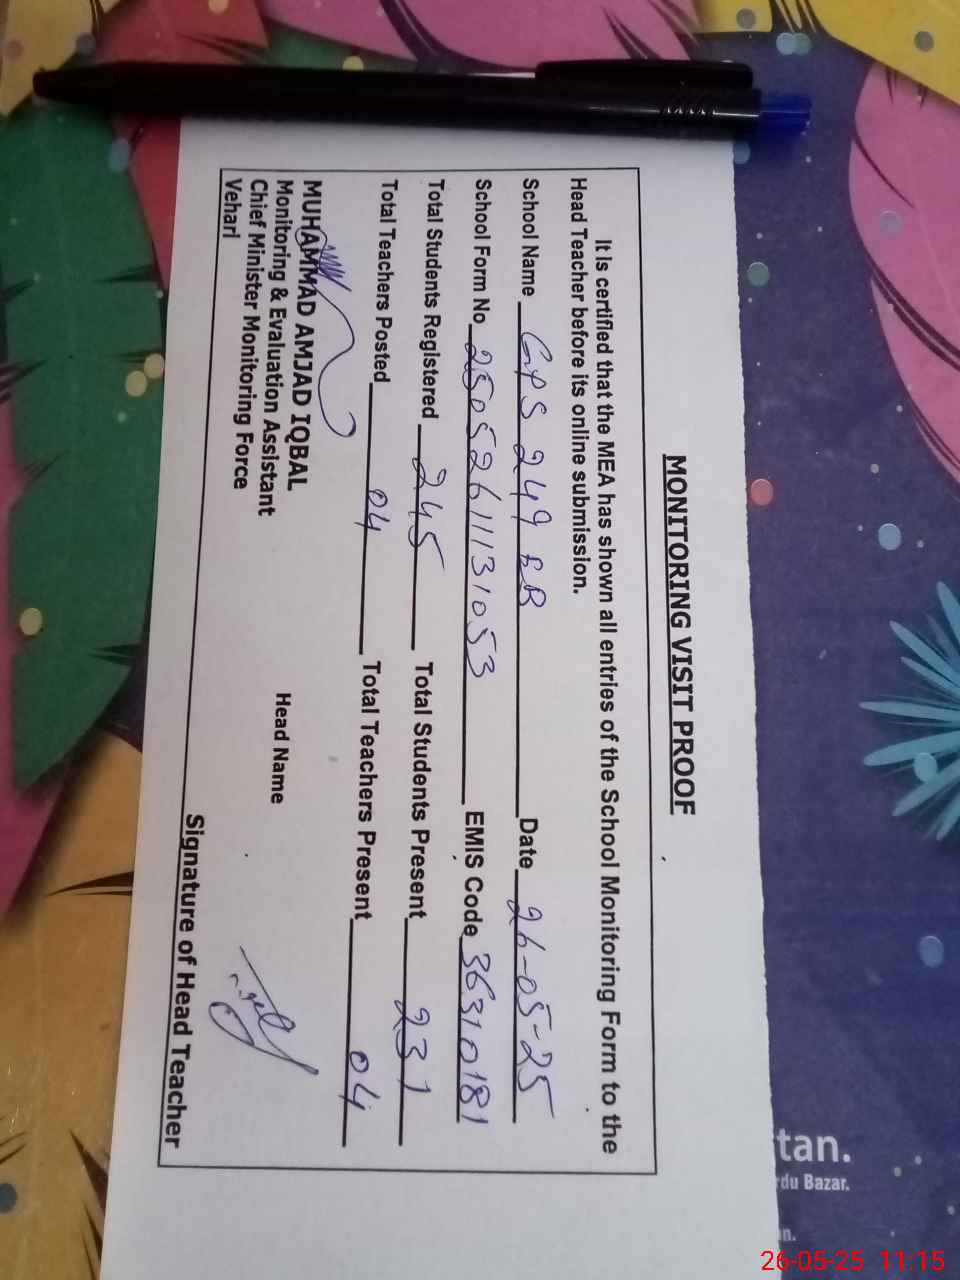 MONITORING VISIT PROOF
It Is certified that the MEA has shown all entries of the School Monitoring Form to the
Head Teacher before its online submission.
School Name GPS 249 EB Date 26-05-25
School Form No 25052611131053 EMIS Code 36310181
Total Students Registered 245 Total Students Present 231
Total Teachers Posted 04 Total Teachers Present 04
MUHAMMAD AMJAD IQBAL
Monitoring & Evaluation Assistant Head Name
Chief Minister Monitoring Force
Vehari
Signature of Head Teacher
tan.
rdu Bazar.
n.
26-05-25 11:15